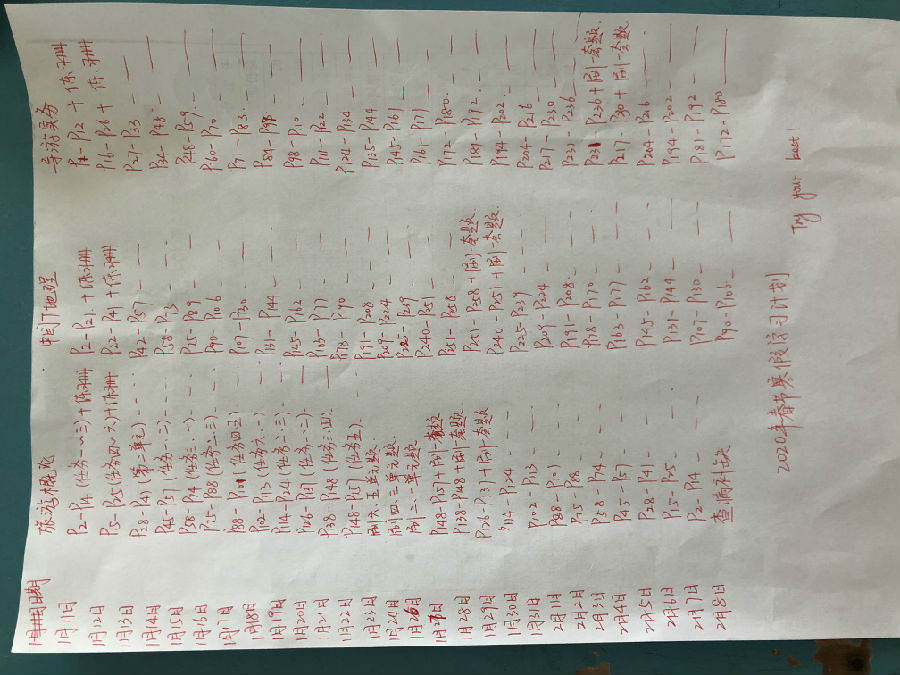 日期 旅游概况 出门地理 导游实务
1月11日 P2-P4(任务一~三)+练习册 P2-P21+练习册 P4-P12+练习册
1月12日 P5-P25(任务四~六)+练习册 P22-P41+练习册 P16-P26+练习册
1月13日 P28-P41(第二单元) P42-P57 P27-P33
1月14日 P45-P57(任务一、二) P58-P73 P34-P48
1月15日 P58-P74(任务一) P75-P89 P48-P59
1月16日 P75-P88(任务二、三) P90-P106 P60-P70
1月17日 P88-P101(任务四、五) P107-P130 P71-P83
1月18日 P102-P113(任务六、一) P131-P144 P84-P98
1月19日 P114-P124(任务二、三) P145-P162 P98-P110
1月20日 P126-P137(任务一、二) P163-P177 P111-P122
1月21日 P138-P148(任务三、四) P178-P190 P124-P134
1月22日 P148-P157(任务五) P191-P208 P135-P144
1月23日 刷六、五单元题 P209-P224 P145-P161
1月24日 刷四、三单元题 P225-P239 P161-P171
1月26日 刷二、一单元题 P240-P251 P172-P180
1月27日 P148-P157+刷一套题 P251-P258 P181-P192
1月28日 P138-P148+刷一套题 P251-P258+刷一套题 P194-P202
1月29日 P126-P137+刷一套题 P240-P251+刷一套题 P204-P216
1月30日 P114-P124 P225-P239 P217-P230
1月31日 P102-P113 P209-P224 P231-P236
2月1日 P88-P101 P191-P208 P231-P236+刷一套题
2月2日 P75-P88 P178-P190 P217-P230+刷一套题
2月3日 P58-P74 P163-P177 P204-P216
2月4日 P45-P57 P145-P162 P194-P202
2月5日 P28-P41 P131-P144 P181-P192
2月6日 P15-P25 P107-P130 P172-P180
2月7日 P2-P14 P90-P106
2月8日 查漏补缺
2020年春节寒假学习计划
Try your best!